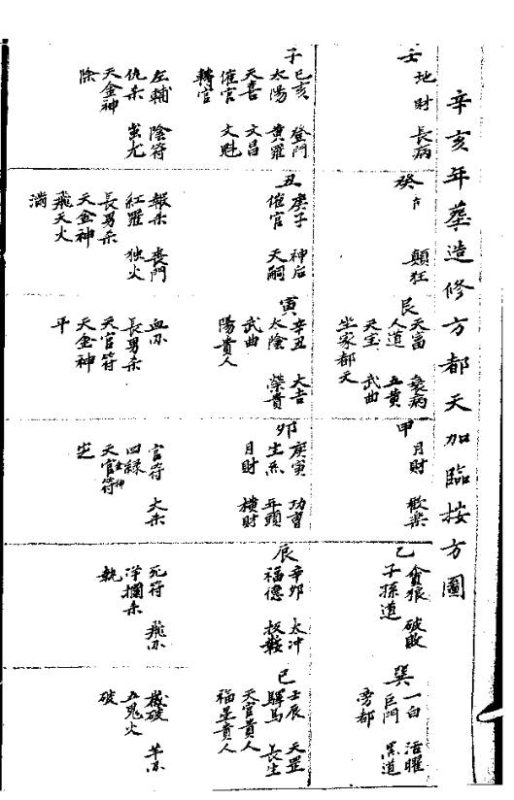 辛亥年墓造修方都天加臨按方圖
壬
地財 長病
癸
顛狂
艮
天富 衰病
人道 五黃
天宝 武曲
坐家都天
甲
月財 歡樂
乙
貪狼 破敗
子孫道
巽
一白 活曜
巨門 黑道
旁都
子
己亥 登門
太陽 黃羅
天喜 文昌
催官 文魁
轉官
丑
庚子 神后
催官 天嗣
寅
辛丑 大吉
太陰 榮貴
武曲
陽貴人
卯
庚寅 功曹
生炁 年頭
月財 橫財
辰
辛卯 太冲
福德
巳
壬辰 天罡
驛馬 長生
天官貴人
福星貴人
左輔 陰符
仇杀 蚩尤
天金神
除
報杀 喪門
紅羅 独火
長男杀
天金神
飛天火
滿
血刃
長男杀
天官符
天金神
平
官符 大杀
四綠
天官符
定
死符 飛刃
浮攔杀
執
歲破 羊刃
五鬼火
破